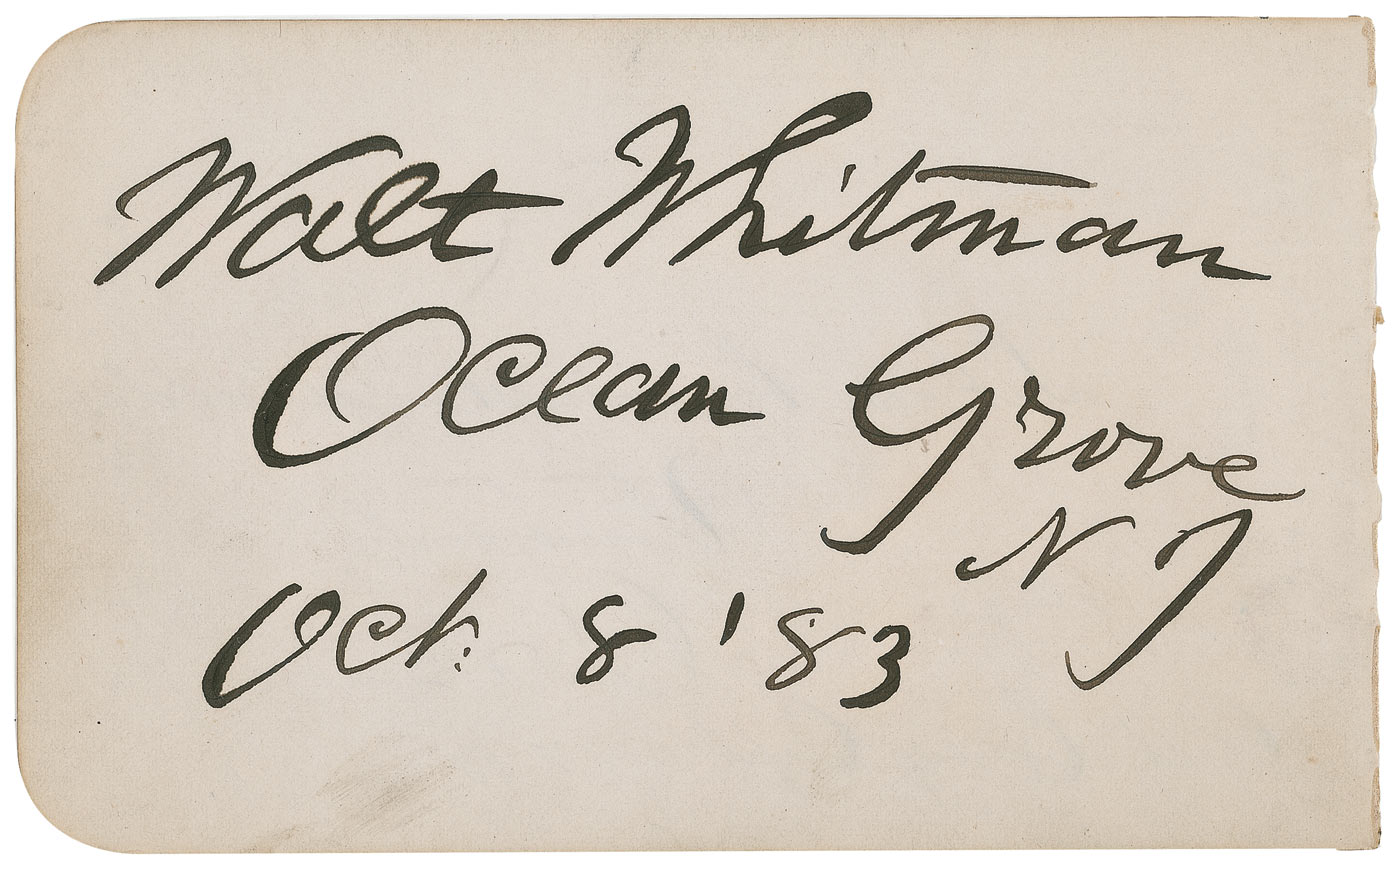 Walt Whitman
Ocean Grove
N J
Oct. 8 '83